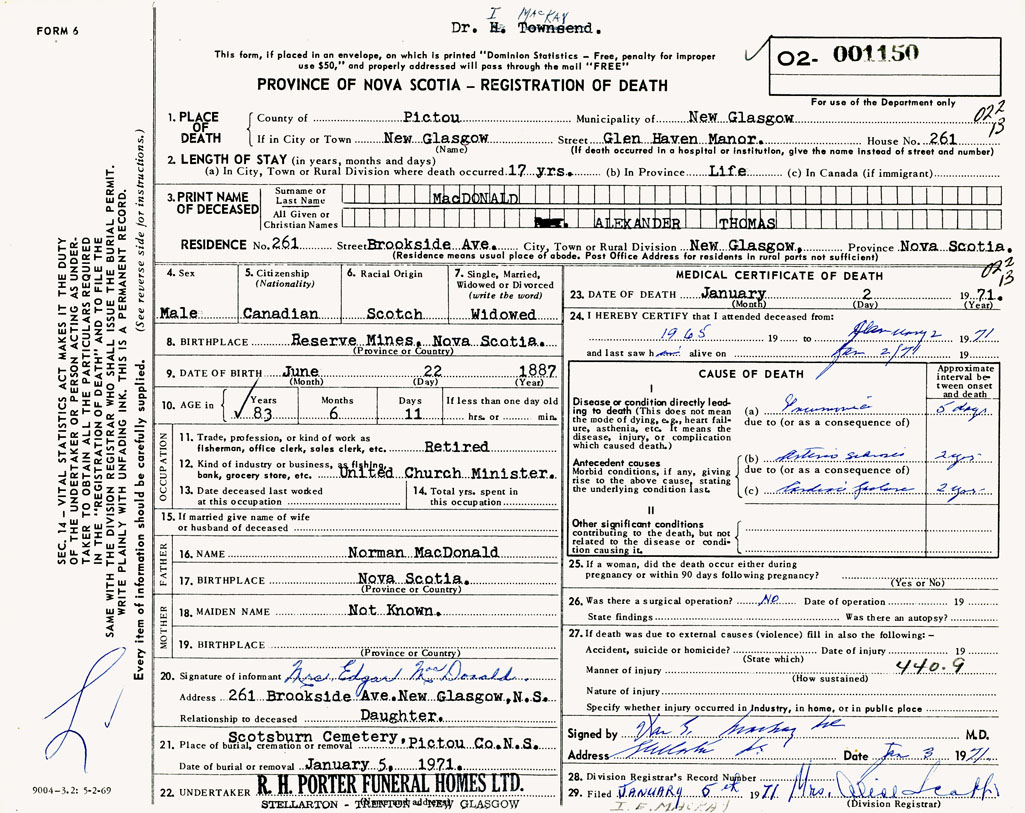 FORM 6
I MacKay
Dr. H. Townsend.
This form, if placed in an envelope, on which is printed "Dominion Statistics – Free, penalty for improper
use $50," and properly addressed will pass through the mail "FREE"
PROVINCE OF NOVA SCOTIA – REGISTRATION OF DEATH
02- 001150
For use of the Department only
022
13
1. PLACE OF DEATH
County of Pictou Municipality of New Glasgow
If in City or Town New Glasgow Street Glen Haven Manor. House No. 261
(Name) (If death occurred in a hospital or institution, give the name instead of street and number)
2. LENGTH OF STAY (in years, months and days)
(a) In City, Town or Rural Division where death occurred 17 yrs. (b) In Province Life (c) In Canada (if immigrant)
3. PRINT NAME OF DECEASED
Surname or Last Name MacDONALD
All Given or Christian Names ALEXANDER THOMAS
RESIDENCE No. 261 Street Brookside Ave. City, Town or Rural Division New Glasgow, Province Nova Scotia.
(Residence means usual place of abode. Post Office Address for residents in rural parts not sufficient)
4. Sex
Male
5. Citizenship
(Nationality)
Canadian
6. Racial Origin
Scotch
7. Single, Married,
Widowed or Divorced
(write the word)
Widowed
8. BIRTHPLACE Reserve Mines, Nova Scotia.
(Province or Country)
9. DATE OF BIRTH June 22 1887
(Month) (Day) (Year)
10. AGE in
Years Months Days If less than one day old
83 6 11 hrs. or min.
OCCUPATION
11. Trade, profession, or kind of work as
fisherman, office clerk, sales clerk, etc. Retired
12. Kind of industry or business, as fishing,
bank, grocery store, etc. United Church Minister.
13. Date deceased last worked
at this occupation
14. Total yrs. spent in
this occupation
15. If married give name of wife
or husband of deceased
FATHER
16. NAME Norman MacDonald
17. BIRTHPLACE Nova Scotia.
(Province or Country)
MOTHER
18. MAIDEN NAME Not Known.
19. BIRTHPLACE
(Province or Country)
20. Signature of informant Mrs. Edgar MacDonald.
Address 261 Brookside Ave. New Glasgow, N.S.
Relationship to deceased Daughter.
21. Place of burial, cremation or removal Scotsburn Cemetery, Pictou Co. N.S.
Date of burial or removal January 5, 1971.
22. UNDERTAKER R. H. PORTER FUNERAL HOMES LTD.
(Name and address)
STELLARTON - TRENTON - NEW GLASGOW
022
13
MEDICAL CERTIFICATE OF DEATH
23. DATE OF DEATH January 2 1971.
(Month) (Day) (Year)
24. I HEREBY CERTIFY that I attended deceased from:
1965 19 to January 2 1971
and last saw h alive on Jan 2/71 19
CAUSE OF DEATH
Approximate
interval be-
tween onset
and death
I
Disease or condition directly lead-
ing to death (This does not mean
the mode of dying, e.g., heart fail-
ure, asthenia, etc. It means the
disease, injury, or complication
which caused death.)
(a) Pneumonia 5 days
due to (or as a consequence of)
Antecedent causes
Morbid conditions, if any, giving
rise to the above cause, stating
the underlying condition last.
(b) 2 yrs
due to (or as a consequence of)
(c) Cardiac failure 2 yrs
II
Other significant conditions
contributing to the death, but not
related to the disease or condi-
tion causing it.
25. If a woman, did the death occur either during
pregnancy or within 90 days following pregnancy?
(Yes or No)
26. Was there a surgical operation? NO Date of operation 19
State findings Was there an autopsy?
27. If death was due to external causes (violence) fill in also the following: –
Accident, suicide or homicide? Date of injury 19
(State which)
Manner of injury 440.9
(How sustained)
Nature of injury
Specify whether injury occurred in industry, in home, or in public place
Signed by M.D.
Address Date Jan 3 1971.
28. Division Registrar's Record Number
29. Filed JANUARY 5th 1971 Mrs.
(Division Registrar)
I. E. MACKAY
SEC. 14 – VITAL STATISTICS ACT MAKES IT THE DUTY
OF THE UNDERTAKER OR PERSON ACTING AS UNDER-
TAKER TO OBTAIN ALL THE PARTICULARS REQUIRED
IN THE "REGISTRATION OF DEATH" AND TO FILE THE
SAME WITH THE DIVISION REGISTRAR WHO SHALL ISSUE THE BURIAL PERMIT.
WRITE PLAINLY WITH UNFADING INK. THIS IS A PERMANENT RECORD.
Every item of information should be carefully supplied. (See reverse side for instructions.)
9004-3.2: 5-2-69